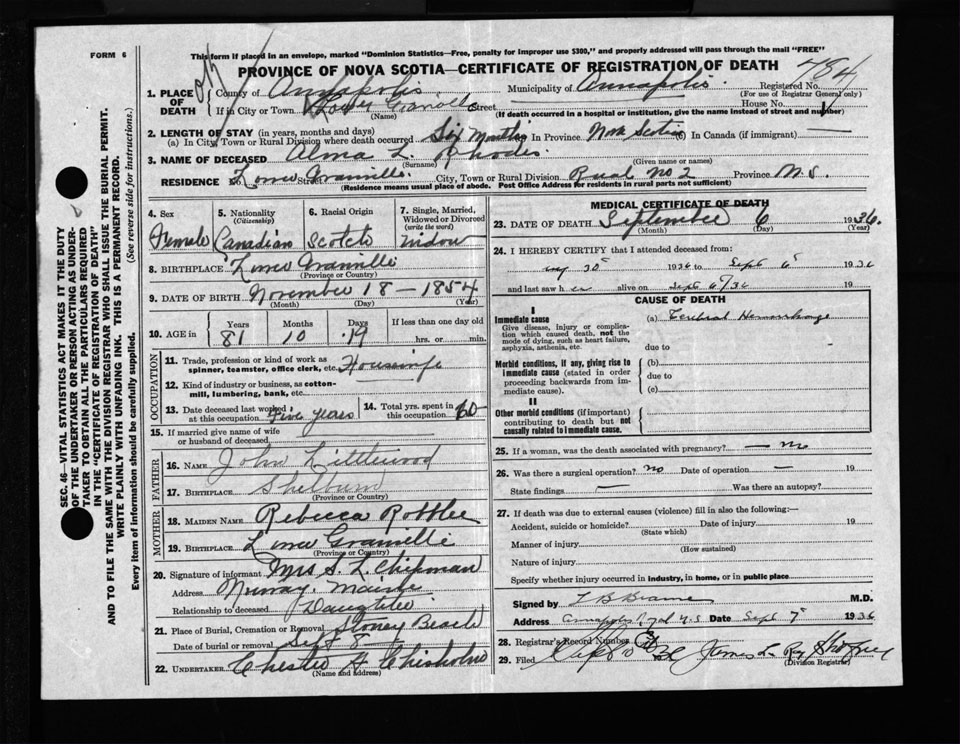 FORM 6
This form if placed in an envelope, marked "Dominion Statistics—Free, penalty for improper use $300," and properly addressed will pass through the mail "FREE"
PROVINCE OF NOVA SCOTIA—CERTIFICATE OF REGISTRATION OF DEATH
784
1. PLACE OF DEATH
County of Annapolis Municipality of Annapolis Registered No.
(For use of Registrar General only)
If in City or Town Lower Granville Street House No.
(Name) (If death occurred in a hospital or institution, give the name instead of street and number)
2. LENGTH OF STAY (in years, months and days)
(a) In City, Town or Rural Division where death occurred Six Months In Province Nova Scotia (c) In Canada (if immigrant) —
3. NAME OF DECEASED Alma L. Rhodes
(Surname) (Given name or names)
RESIDENCE No. Lower Granville Street City, Town or Rural Division Rural No 2 Province N.S
(Residence means usual place of abode. Post Office Address for residents in rural parts not sufficient)
4. Sex
Female
5. Nationality
(Citizenship)
Canadian
6. Racial Origin
Scotch
7. Single, Married, Widowed or Divorced
(write the word)
Widow
8. BIRTHPLACE Lower Granville
(Province or Country)
9. DATE OF BIRTH November 18 — 1854
(Month) (Day) (Year)
10. AGE in
Years Months Days If less than one day old
81 10 19 hrs. or min.
OCCUPATION
11. Trade, profession or kind of work as
spinner, teamster, office clerk, etc. Housewife
12. Kind of industry or business, as cotton-
mill, lumbering, bank, etc.
13. Date deceased last worked
at this occupation Five years
14. Total yrs. spent in
this occupation 60
15. If married give name of wife
or husband of deceased
FATHER
16. NAME John Littlewood
17. BIRTHPLACE Shelburn
(Province or Country)
MOTHER
18. MAIDEN NAME Rebecca Robblee
19. BIRTHPLACE Lower Granville
(Province or Country)
20. Signature of informant Mrs S. L. Chipman
Address Norway, Maine
Relationship to deceased Daughter
21. Place of Burial, Cremation or Removal Stoney Beach
Date of burial or removal Sept 8
22. UNDERTAKER Chester A Chisholm
(Name and address)
MEDICAL CERTIFICATE OF DEATH
23. DATE OF DEATH September 6 1936.
(Month) (Day) (Year)
24. I HEREBY CERTIFY that I attended deceased from:
30 1936 to Sept 6 1936
and last saw her alive on Sept 6/36 19
CAUSE OF DEATH
I
Immediate cause (a) Cerebral Hemorrhage
Give disease, injury or complica-
tion which caused death, not the
mode of dying, such as heart failure,
asphyxia, asthenia, etc.
due to
Morbid conditions, if any, giving rise to
immediate cause (stated in order
proceeding backwards from im-
mediate cause).
(b)
due to
(c)
II
Other morbid conditions (if important)
contributing to death but not
causally related to immediate cause.
25. If a woman, was the death associated with pregnancy? — no
26. Was there a surgical operation? no Date of operation — 19
State findings — Was there an autopsy?
27. If death was due to external causes (violence) fill in also the following:—
Accident, suicide or homicide? Date of injury 19
(State which)
Manner of injury
(How sustained)
Nature of injury
Specify whether injury occurred in industry, in home, or in public place
Signed by M.D.
Address Annapolis Royal N.S Date Sept 7 1936
28. Registrar's Record Number
29. Filed
(Division Registrar)
SEC. 46—VITAL STATISTICS ACT MAKES IT THE DUTY
OF THE UNDERTAKER OR PERSON ACTING AS UNDER-
TAKER TO OBTAIN ALL THE PARTICULARS REQUIRED
IN THE "CERTIFICATE OF REGISTRATION OF DEATH"
AND TO FILE THE SAME WITH THE DIVISION REGISTRAR WHO SHALL ISSUE THE BURIAL PERMIT.
WRITE PLAINLY WITH UNFADING INK. THIS IS A PERMANENT RECORD.
Every item of information should be carefully supplied. (See reverse side for instructions.)